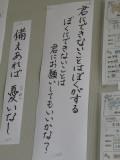 君にできないことはぼくがする
ぼくにできないことは
君にお願いしてもいいかな？
備えあれば 憂いなし